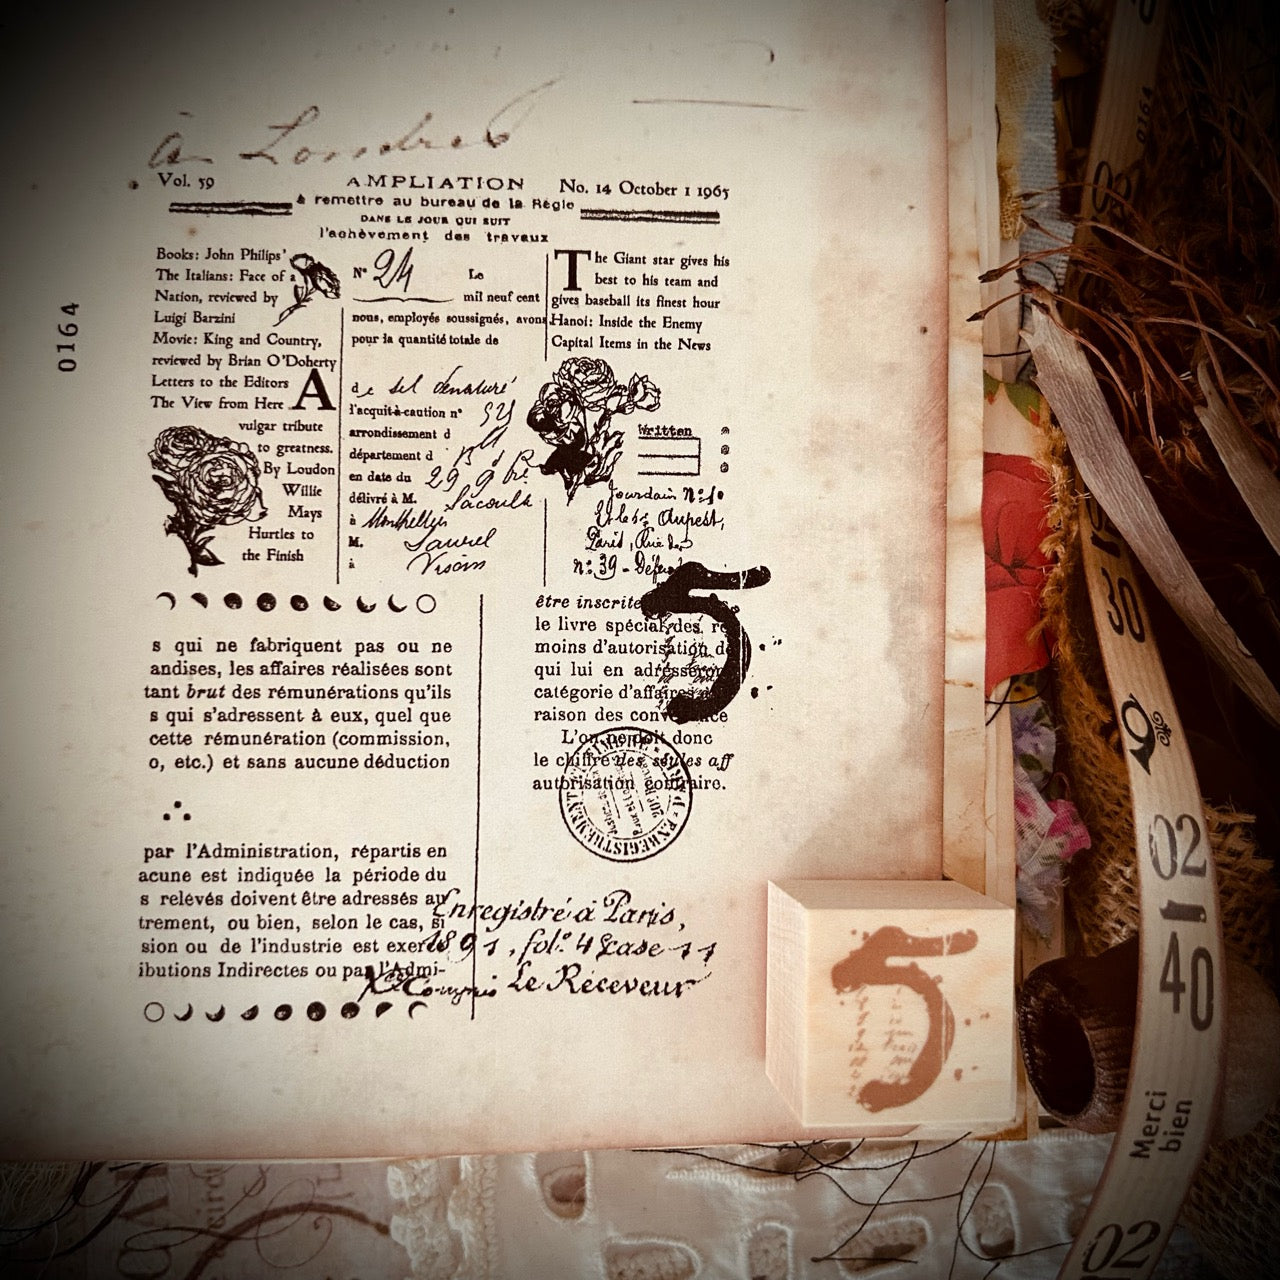 à Londres
Vol. 59
AMPLIATION
No. 14 October 1 1965
à remettre au bureau de la Régie
DANS LE JOUR QUI SUIT
l'achèvement des travaux
Books: John Philips'
The Italians: Face of a
Nation, reviewed by
Luigi Barzini
Movie: King and Country,
reviewed by Brian O'Doherty
Letters to the Editors
The View from Here
A
vulgar tribute
to greatness.
By Loudon
Willie
Mays
Hurtles to
the Finish
N° 24 Le
mil neuf cent
nous, employés soussignés, avons
pour la quantité totale de
de sel dénaturé
l'acquit-à-caution n°
arrondissement d
département d
en date du 29 9bre
délivré à M. Lacoule
à Montpellier
M. Saurel
à
The Giant star gives his
best to his team and
gives baseball its finest hour
Hanoi: Inside the Enemy
Capital Items in the News
Written
Jourdain
Paris, Rue de
n° 39 -
5
s qui ne fabriquent pas ou ne
andises, les affaires réalisées sont
tant brut des rémunérations qu'ils
s qui s'adressent à eux, quel que
cette rémunération (commission,
o, etc.) et sans aucune déduction
par l'Administration, répartis en
acune est indiquée la période du
s relevés doivent être adressés au
trement, ou bien, selon le cas, si
sion ou de l'industrie est exer
ibutions Indirectes ou par l'Admi-
être inscrite
le livre spécial des r
moins d'autorisation d
qui lui en adresseron
catégorie d'affaires
raison des convenance
L'on ne doit donc
le chiffre des seules aff
autorisation contraire.
ENREGISTREMENT
Enregistré à Paris,
1891, fol. 4 case 11
Le Receveur
0164
5
0164
30
02
40
Merci
bien
02